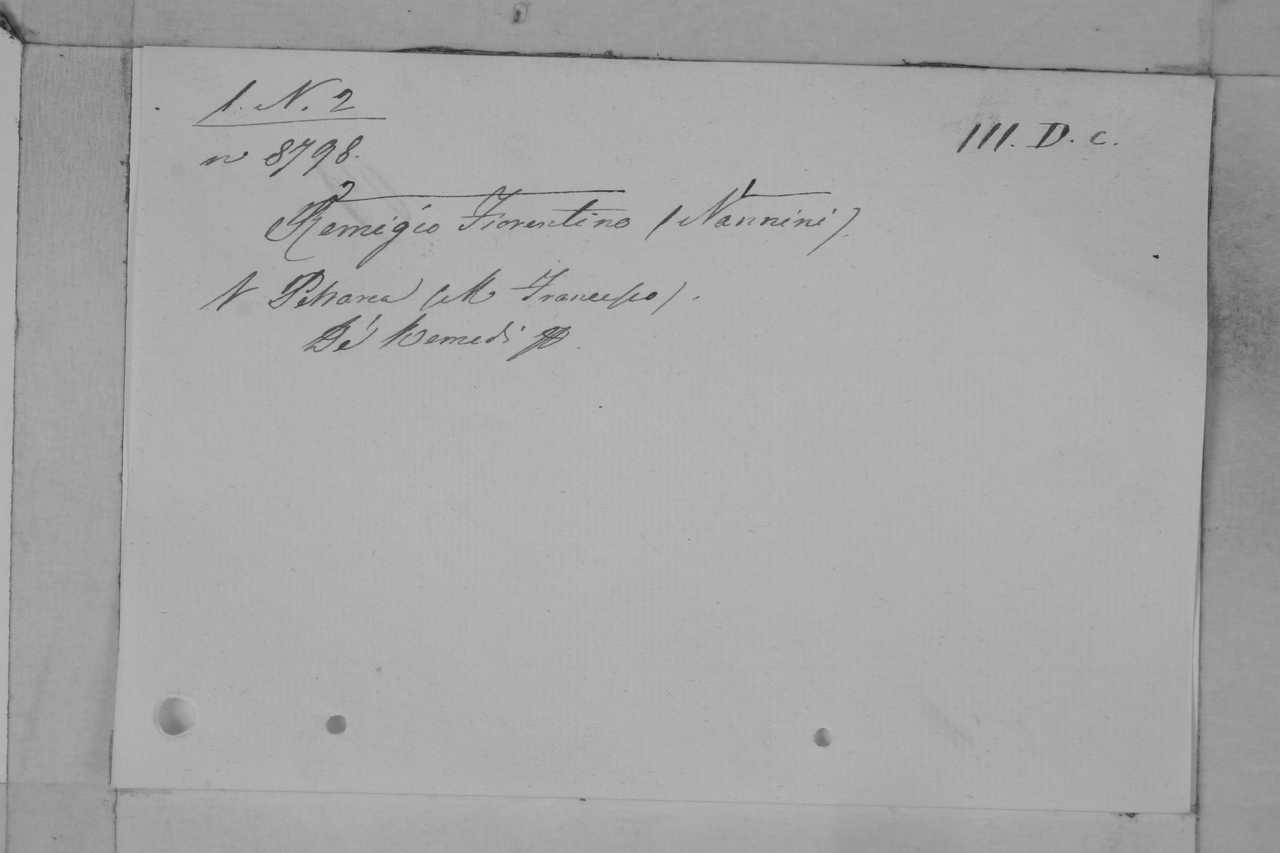 1. N. 2
III. D. c.
n 8798.
2 1
Remigio Fiorentino (Nannini).
V Petrarca (M Francesco).
Dé Remedi